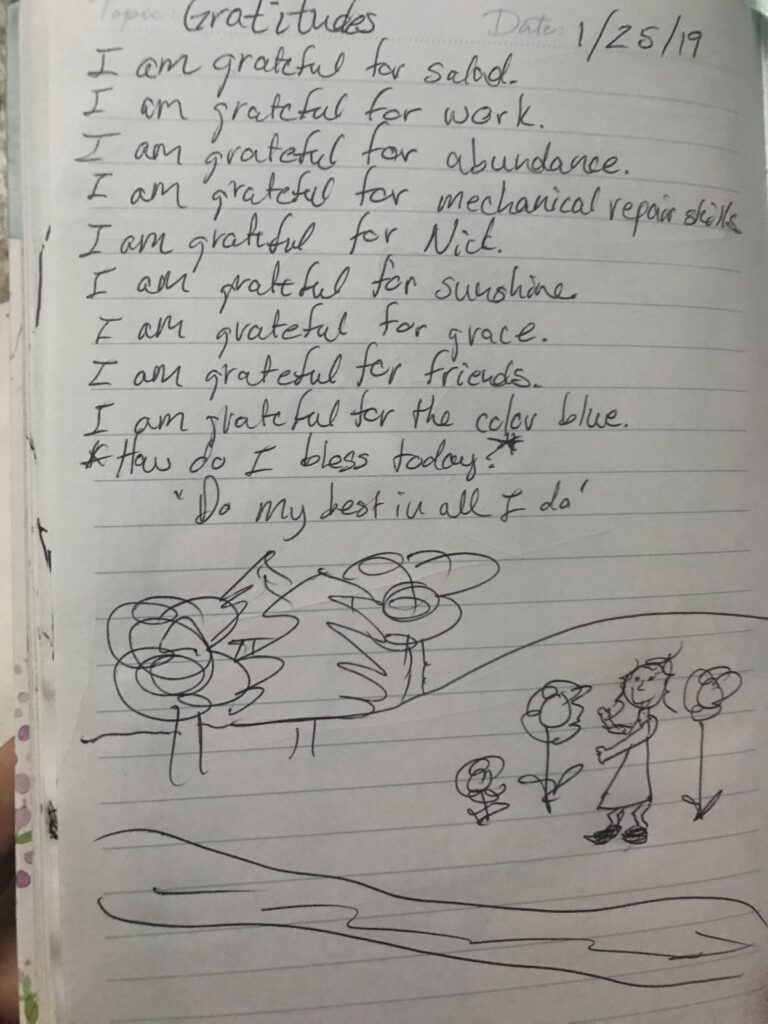 Topic: Gratitudes Date: 1/25/19
I am grateful for salad.
I am grateful for work.
I am grateful for abundance.
I am grateful for mechanical repair skills
I am grateful for Nick.
I am grateful for sunshine.
I am grateful for grace.
I am grateful for friends.
I am grateful for the color blue.
*How do I bless today?*
"Do my best in all I do"